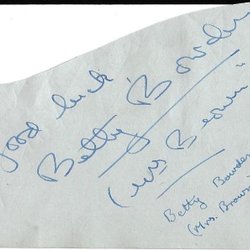 Good luck
Betty Bowden
(Mrs Brown"
Betty Bowden
(Mrs. Brown